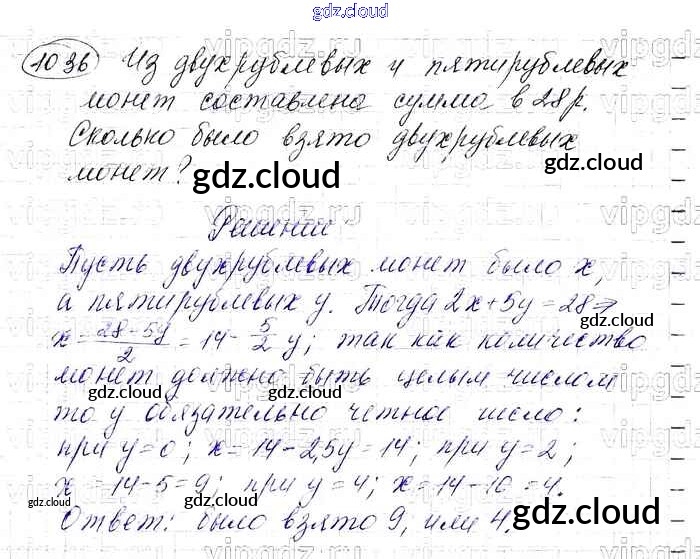 gdz.cloud
1036 Из двухрублевых и пятирублевых
монет составлена сумма в 28 р.
Сколько было взято двухрублевых
монет?
gdz.cloud
Решение
Пусть двухрублевых монет было x,
а пятирублевых y. Тогда 2x+5y=28⇒
gdz.cloud
x=(28-5y)/2=14-5/2 y; так как количество
монет должно быть целым числом
gdz.cloud gdz.cloud
то y обязательно четное число:
при y=0; x=14-2,5y=14; при y=2;
x=14-5=9; при y=4; x=14-10=4.
gdz.cloud gdz.cloud
Ответ: было взято 9, или 4.
gdz.cloud